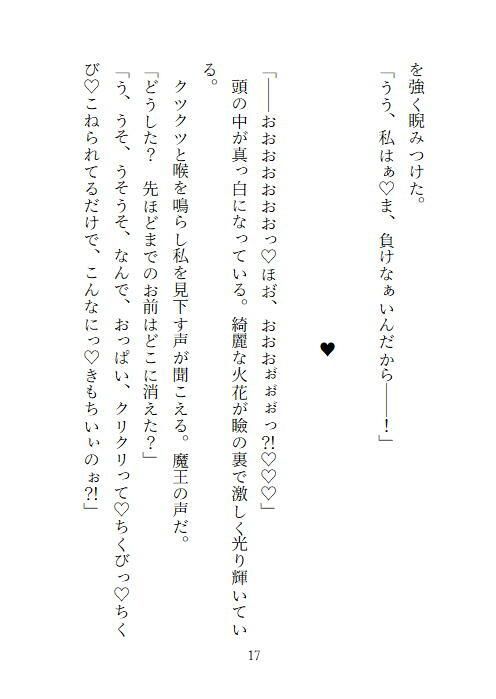 を強く睨みつけた。
「うう、私はぁ♡ま、負けなぁいんだから――！」
♥
「――おおおおおおおっ♡ほぉ゛、おおおぉ゛ぉ゛ぉ゛っ⁈♡♡♡」
　頭の中が真っ白になっている。綺麗な火花が瞼の裏で激しく光り輝いてい
る。
　クツクツと喉を鳴らし私を見下す声が聞こえる。魔王の声だ。
「どうした？　先ほどまでのお前はどこに消えた？」
「う、うそ、うそうそ、なんで、おっぱい、クリクリって♡ちくびっ♡ちく
び♡こねられてるだけで、こんなにっ♡きもちいぃのぉ⁈」
17